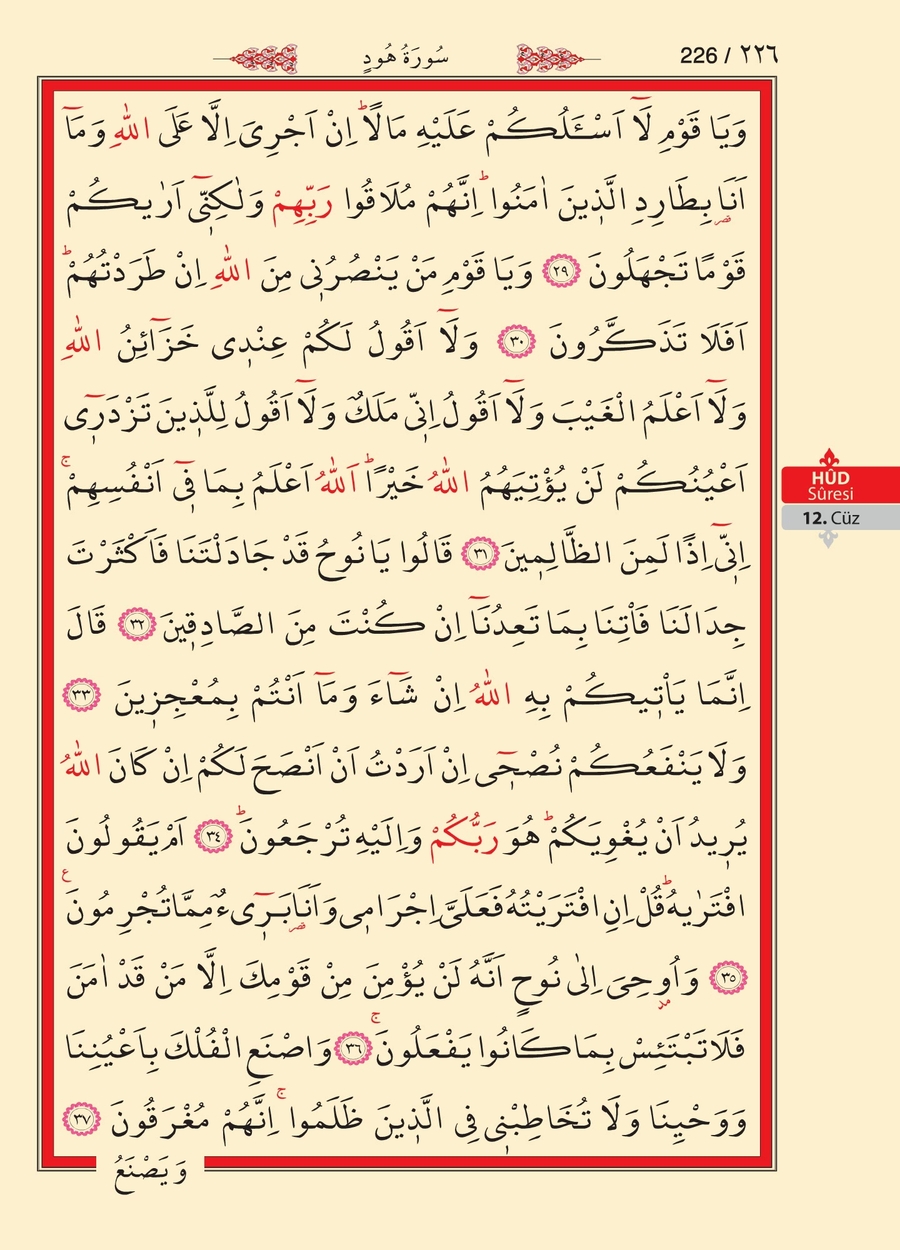 سُورَةُ هُودٍ
226 / ٢٢٦
وَيَا قَوْمِ لَٓا اَسْـَٔلُكُمْ عَلَيْهِ مَالًاۜ اِنْ اَجْرِيَ اِلَّا عَلَى اللّٰهِ وَمَٓا
اَنَا۬ بِطَارِدِ الَّذٖينَ اٰمَنُواۜ اِنَّهُمْ مُلَاقُوا رَبِّهِمْ وَلٰكِنّٖٓي اَرٰيكُمْ
قَوْمًا تَجْهَلُونَ ﴿٢٩﴾ وَيَا قَوْمِ مَنْ يَنْصُرُنٖي مِنَ اللّٰهِ اِنْ طَرَدْتُهُمْۜ
اَفَلَا تَذَكَّرُونَ ﴿٣٠﴾ وَلَٓا اَقُولُ لَكُمْ عِنْدٖي خَزَٓائِنُ اللّٰهِ
وَلَٓا اَعْلَمُ الْغَيْبَ وَلَٓا اَقُولُ اِنّٖي مَلَكٌ وَلَٓا اَقُولُ لِلَّذٖينَ تَزْدَرٖٓي
اَعْيُنُكُمْ لَنْ يُؤْتِيَهُمُ اللّٰهُ خَيْرًاۜ اَللّٰهُ اَعْلَمُ بِمَا فٖٓي اَنْفُسِهِمْۚ
اِنّٖٓي اِذًا لَمِنَ الظَّالِمٖينَ ﴿٣١﴾ قَالُوا يَا نُوحُ قَدْ جَادَلْتَنَا فَاَكْثَرْتَ
جِدَالَنَا فَاْتِنَا بِمَا تَعِدُنَٓا اِنْ كُنْتَ مِنَ الصَّادِقٖينَ ﴿٣٢﴾ قَالَ
اِنَّمَا يَاْتٖيكُمْ بِهِ اللّٰهُ اِنْ شَٓاءَ وَمَٓا اَنْتُمْ بِمُعْجِزٖينَ ﴿٣٣﴾
وَلَا يَنْفَعُكُمْ نُصْحٖٓي اِنْ اَرَدْتُ اَنْ اَنْصَحَ لَكُمْ اِنْ كَانَ اللّٰهُ
يُرٖيدُ اَنْ يُغْوِيَكُمْۜ هُوَ رَبُّكُمْ وَاِلَيْهِ تُرْجَعُونَۜ ﴿٣٤﴾ اَمْ يَقُولُونَ
افْتَرٰيهُۜ قُلْ اِنِ افْتَرَيْتُهُ فَعَلَيَّ اِجْرَامٖي وَاَنَا۬ بَرٖٓيءٌ مِمَّا تُجْرِمُونَ۟
﴿٣٥﴾ وَاُو۫حِيَ اِلٰى نُوحٍ اَنَّهُ لَنْ يُؤْمِنَ مِنْ قَوْمِكَ اِلَّا مَنْ قَدْ اٰمَنَ
فَلَا تَبْتَئِسْ بِمَا كَانُوا يَفْعَلُونَۚ ﴿٣٦﴾ وَاصْنَعِ الْفُلْكَ بِاَعْيُنِنَا
وَوَحْيِنَا وَلَا تُخَاطِبْنٖي فِي الَّذٖينَ ظَلَمُواۚ اِنَّهُمْ مُغْرَقُونَ ﴿٣٧﴾
وَيَصْنَعُ
HÛD
Sûresi
12. Cüz